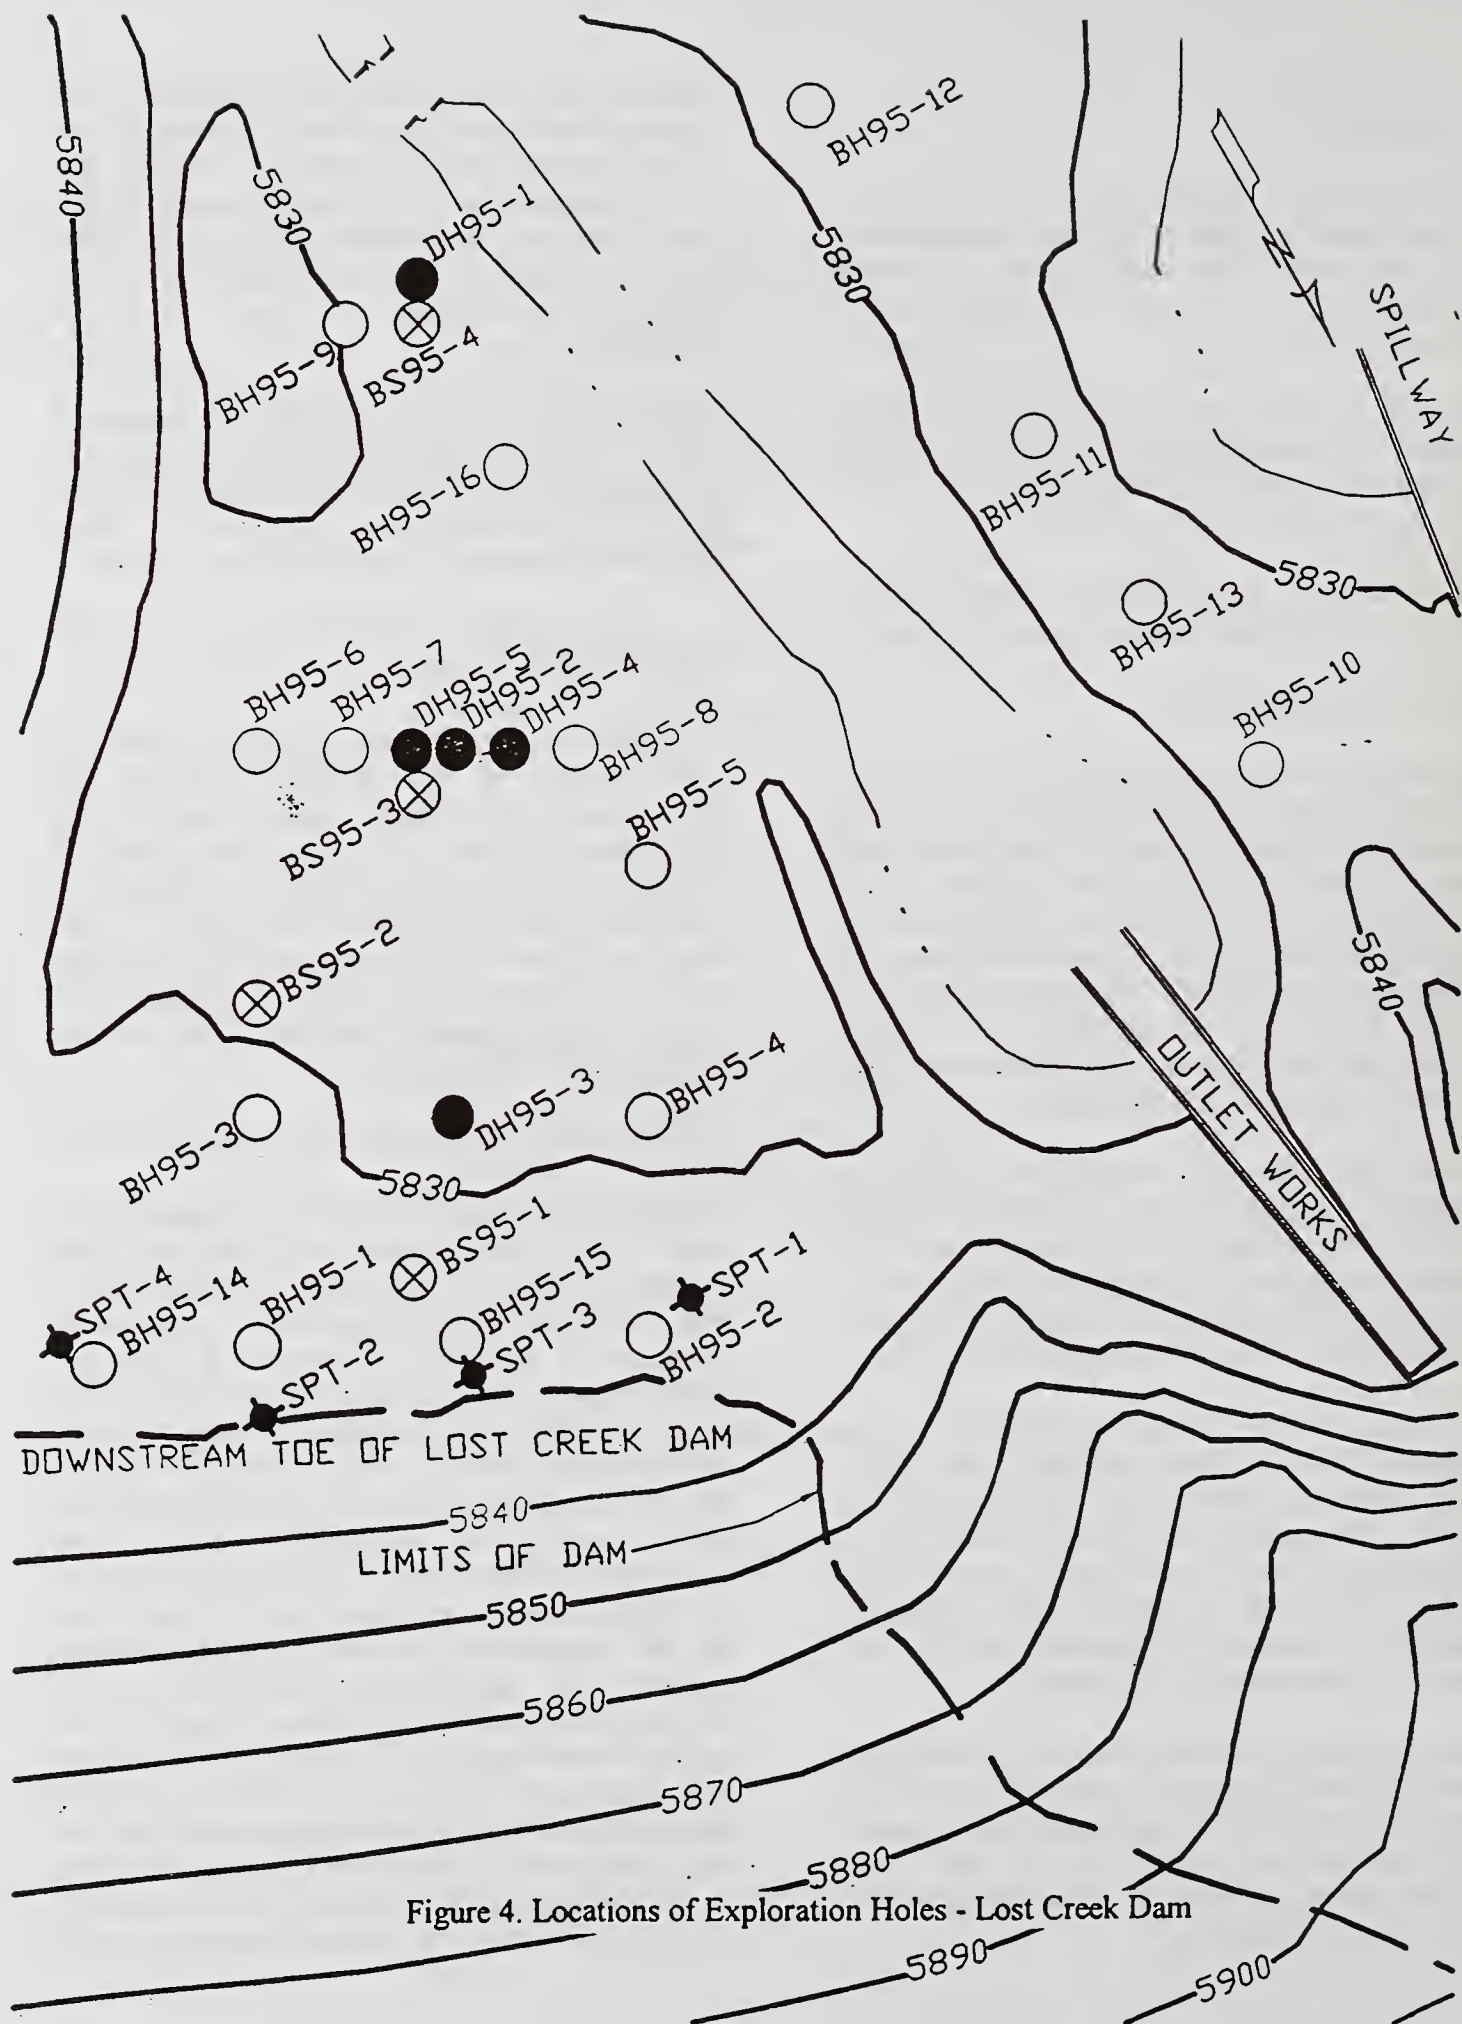 5840
5830
BH95-12
DH95-1
5830
N
SPILLWAY
BH95-9
BS95-4
BH95-16
BH95-11
5830
BH95-13
BH95-6
BH95-7
DH95-5
DH95-2
DH95-4
BH95-8
BH95-10
BS95-3
BH95-5
BS95-2
5840
OUTLET WORKS
BH95-4
DH95-3
BH95-3
5830
BS95-1
SPT-4
BH95-14
BH95-1
BH95-15
SPT-1
SPT-3
BH95-2
SPT-2
DOWNSTREAM TOE OF LOST CREEK DAM
5840
LIMITS OF DAM
5850
5860
5870
5880
Figure 4. Locations of Exploration Holes - Lost Creek Dam
5890
5900